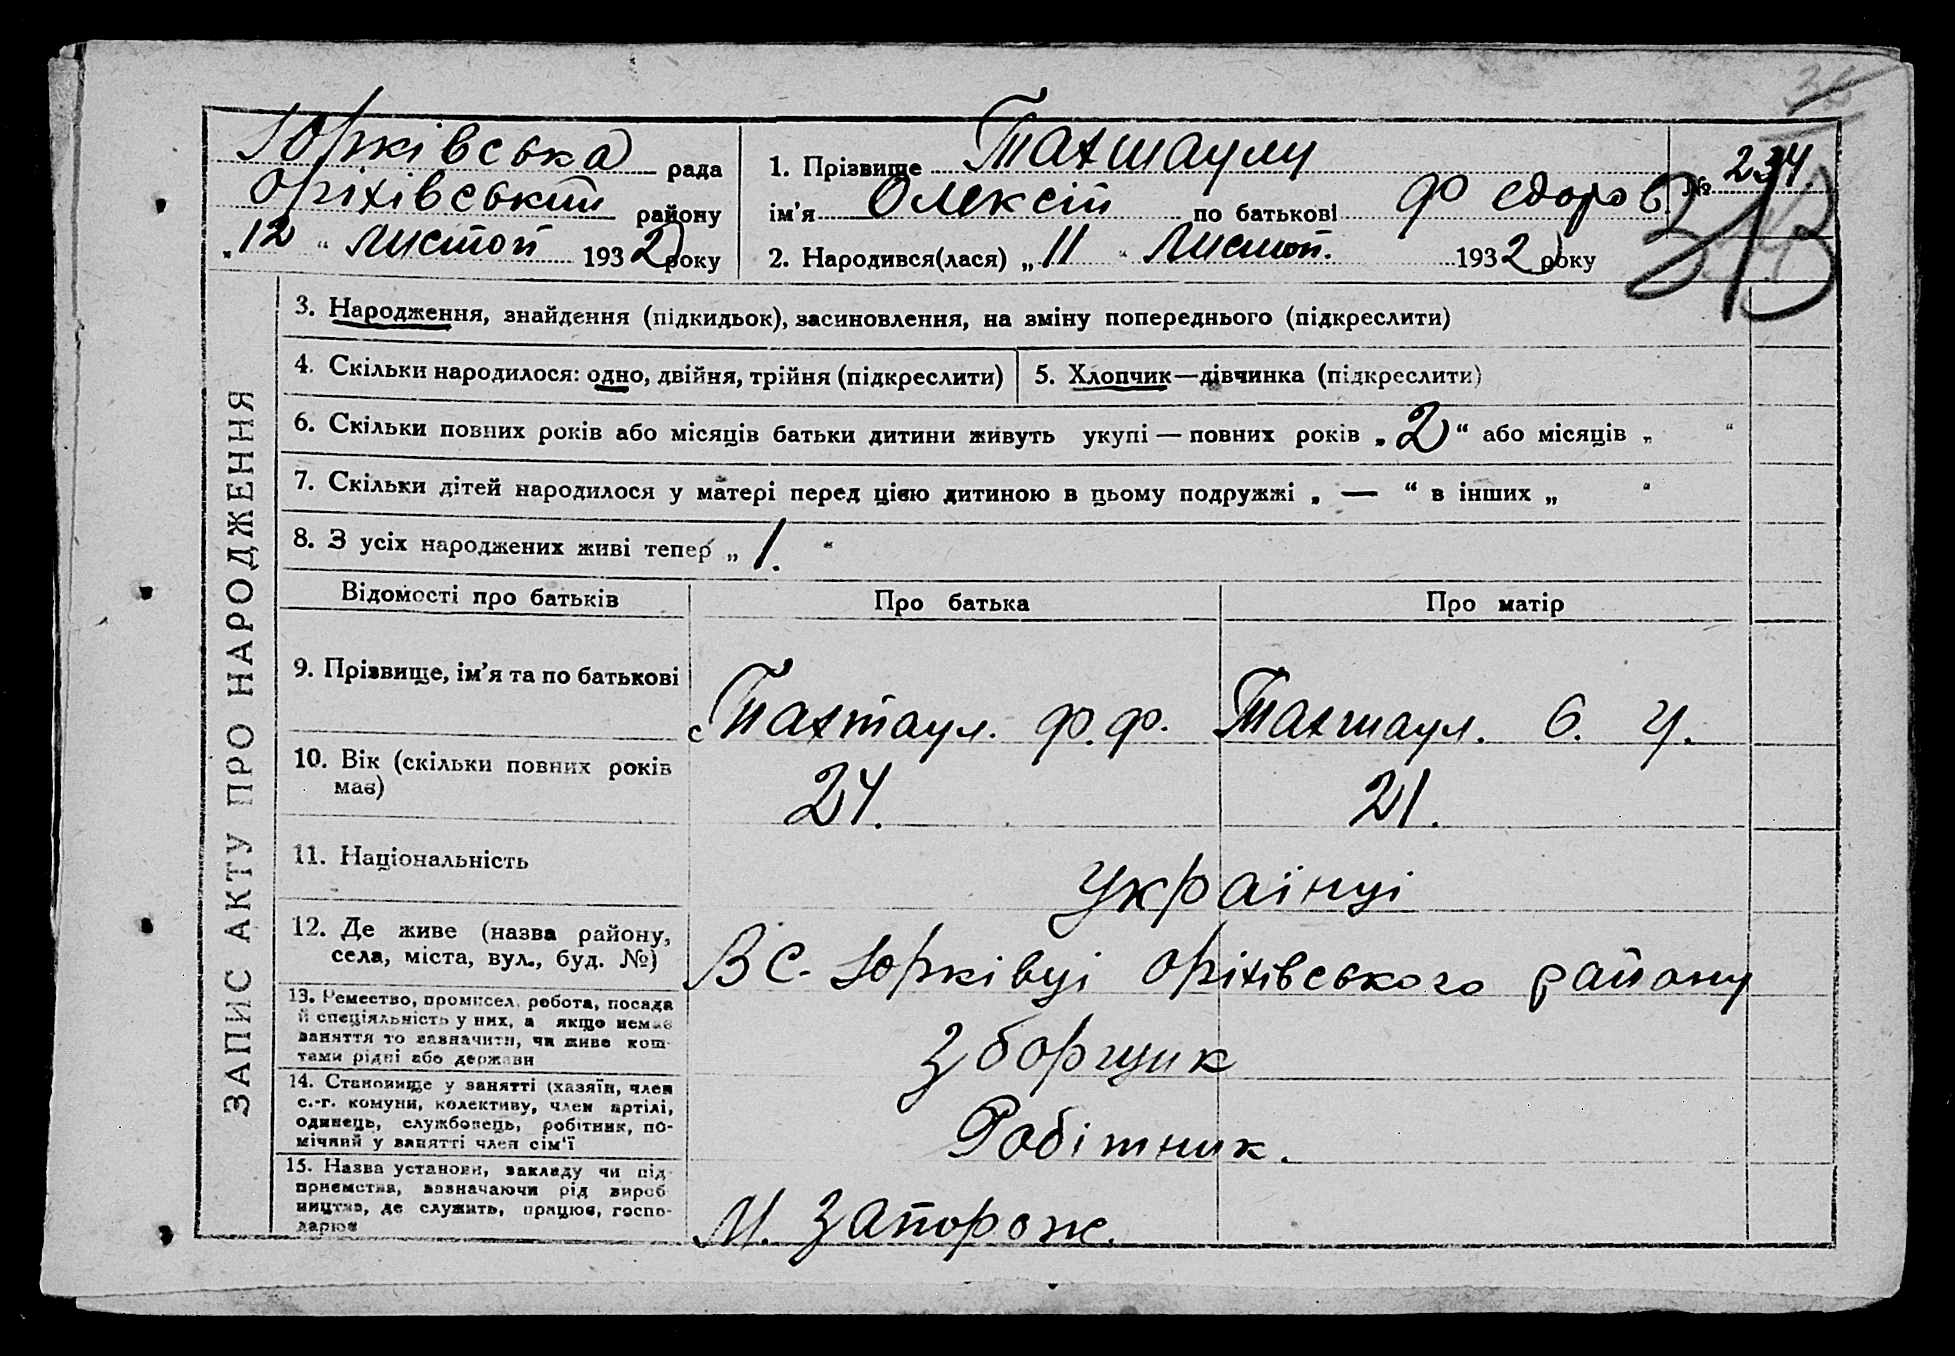 Юрківська рада
Оріхівський району
„12“ Листоп 1932 року
1. Прізвище Тахтаулу
ім'я Олексій по батькові Федоров
2. Народився(лася) „11“ Листоп. 1932 року
№ 234.
ЗАПИС АКТУ ПРО НАРОДЖЕННЯ
3. Народження, знайдення (підкидьок), засиновлення, на зміну попереднього (підкреслити)
4. Скільки народилося: одно, двійня, трійня (підкреслити)
5. Хлопчик—дівчинка (підкреслити)
6. Скільки повних років або місяців батьки дитини живуть укупі — повних років „2“ або місяців „ “
7. Скільки дітей народилося у матері перед цією дитиною в цьому подружжі „ — “ в інших „ “
8. З усіх народжених живі тепер „1.“
Відомості про батьків Про батька Про матір
9. Прізвище, ім'я та по батькові Тахтаул. Ф. Ф. Тахтаул. Є. У.
10. Вік (скільки повних років
має) 24. 21.
11. Національність Українці
12. Де живе (назва району,
села, міста, вул., буд. №) В с. Юрківці Оріхівського району
13. Ремество, промисел, робота, посада
й спеціяльність у них, а якщо немає
заняття то зазначити, чи живе кош-
тами рідні або держави Зборщик
14. Становище у занятті (хазяїн, член
с.-г. комуни, колективу, член артілі,
одинець, службовець, робітник, по-
мічний у занятті член сім'ї Робітник.
15. Назва установи, закладу чи під-
приємства, зазначаючи рід вироб-
ництва, де служить, працює, госпо-
дарює М. Запорож.